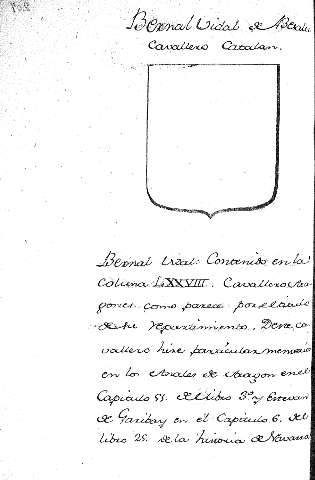 Bernal Vidal de Besalu
Cavallero Catalan.
Bernal Vidal: Contenido en la
Coluna LXXVIII. Cavallero Ara-
gones como parece por el titulo
de su repartimiento. Deste ca-
vallero hace particular memoria
en los Anales de Aragon en el
Capitulo 55. del libro 3º. y Estevan
de Garibay en el Capitulo 6. del
libro 25. de la historia de Navarra